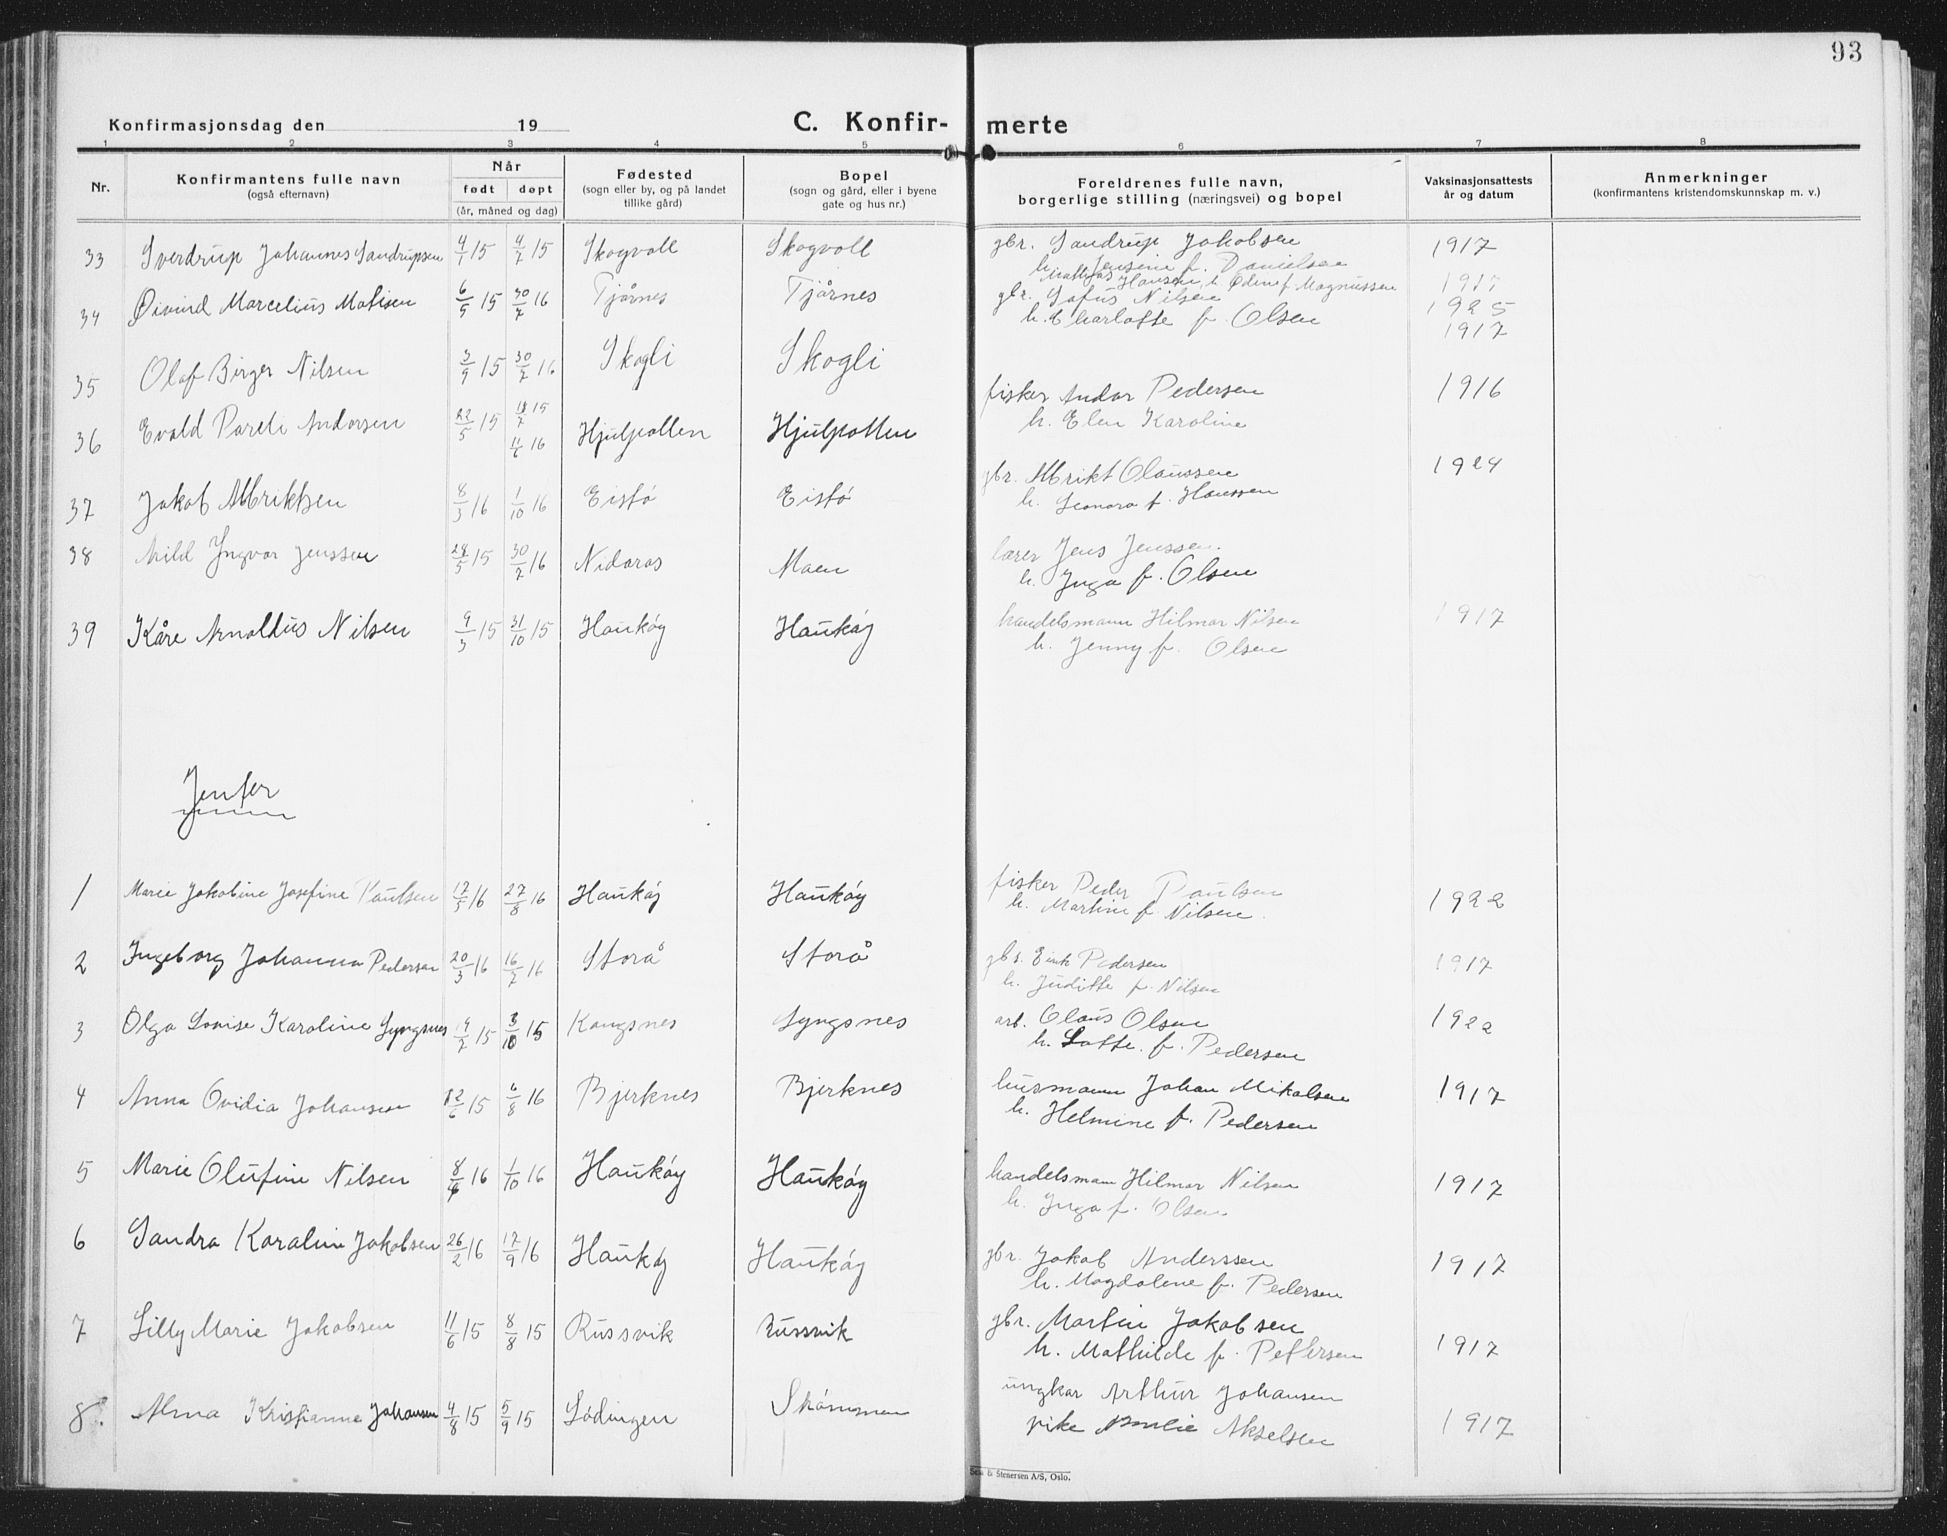 93
Konfirmasjonsdag den 19
C. Konfir- merte
1 2 3 4 5 6 7 8
Nr.
Konfirmantens fulle navn
(også efternavn)
Når
født døpt
(år, måned og dag)
Fødested
(sogn eller by, og på landet
tillike gård)
Bopel
(sogn og gård, eller i byene
gate og hus nr.)
Foreldrenes fulle navn,
borgerlige stilling (næringsvei) og bopel
Vaksinasjonsattests
år og datum
Anmerkninger
(konfirmantens kristendomskunnskap m. v.)
33 Sverdrup Johannes Sandrupsen 4/1 15 4/7 15 Skogvoll Skogvoll gbr. Sandrup Jakobsen 1917
h. Jensine f. Danielsen
34 Øivind Marcelius Matisen 6/5 15 30/7 16 Tjårnes Tjårnes Mathias Hansen, h. Odine f. Magnussen
gbr. Sofus Nilsen 1925
h. Charlotte f. Olsen 1917
35 Olaf Birger Nilsen 3/9 15 30/7 16 Skogli Skogli
36 Evald Pareli Andorsen 22/5 15 18/7 15 Hjulpollen Hjulpollen fisker Andor Pedersen 1916
h. Elen Karoline
16
37 Jakob Albriktsen 8/3 16 1/10 16 Eisfó Eisfó gbr. Albrikt Olaussen 1924
h. Leonora f. Hanssen
38 Mild Yngvar Jenssen 28/5 15 30/7 16 Nidaros Moen lærer Jens Jenssen.
h. Inga f. Olsen
39 Kåre Arnoldus Nilsen 9/3 15 31/10 15 Haukóy Haukóy handelsmann Hilmar Nilsen 1917
h. Jenny f. Olsen
Jenter
1 Marie Jakobine Josefine Paulsen 17/5 16 27/8 16 Haukóy Haukóy fisker Peder Paulsen 1922
h. Martine f. Nilsen.
2 Ingeborg Johanna Pedersen 20/3 16 16/7 16 Storå Storå gbr. Eirik Pedersen 1917
h. Juditte f. Nilsen
3 Olga Lovise Karoline Lyngsnes 14/7 15 3/10 15 Kongsnes Lyngsnes arb. Olaus Olsen 1922
h. Lotte f. Pedersen
4 Anna Ovidia Johansen 12/6 15 6/8 16 Bjerknes Bjerknes husmann Johan Mikalsen 1917
h. Helmine f. Pedersen
5 Marie Olufine Nilsen 8/4 16 1/10 16 Haukóy Haukóy handelsmann Hilmar Nilsen 1917
h. Inga f. Olsen
6 Sandra Karoline Jakobsen 26/2 16 17/9 16 Haukóy Haukóy gbr. Jakob Anderssen 1917
h. Magdalene f. Pedersen
7 Lilly Marie Jakobsen 11/6 15 8/8 15 Russvik Russvik gbr. Martin Jakobsen 1917
h. Mathilde f. Pettersen
8. Alma Kristianne Johansen 4/8 15 5/9 15 Lódingen Skómmen ungkar Arthur Johansen 1917
pike Amalie Akselsen
Sem & Stenersen A/S, Oslo.